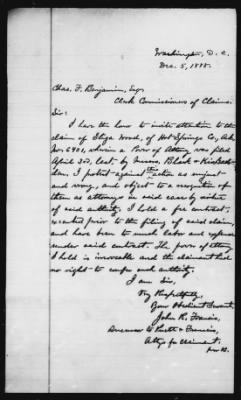 Washington, D.C.
Dec. 5, 1878.
Chas. F. Benjamin, Esq.
Clerk Commissioners of Claims.
Sir:
I have the honor to invite attention to the
claim of Eliza Wood, of Hot Springs Co, Ark.
No 6901, wherein a Power of Attorney was filed
April 3rd, last, by Messrs. Black &
I protest against action as unjust
and wrong, and object to a recognition of
them as attorneys in said case by virtue
of said authority. I hold a fee contract,
executed prior to the filing of said claim,
and have been to much labor and expense
under said contract. The power of attorney
I hold is irrevocable and the claimant had
no right to confer such authority.
I am Sir,
Very Respectfully,
Your Obedient Servant,
John R. Francis,
Successor to & Francis,
Atty for Claimant.